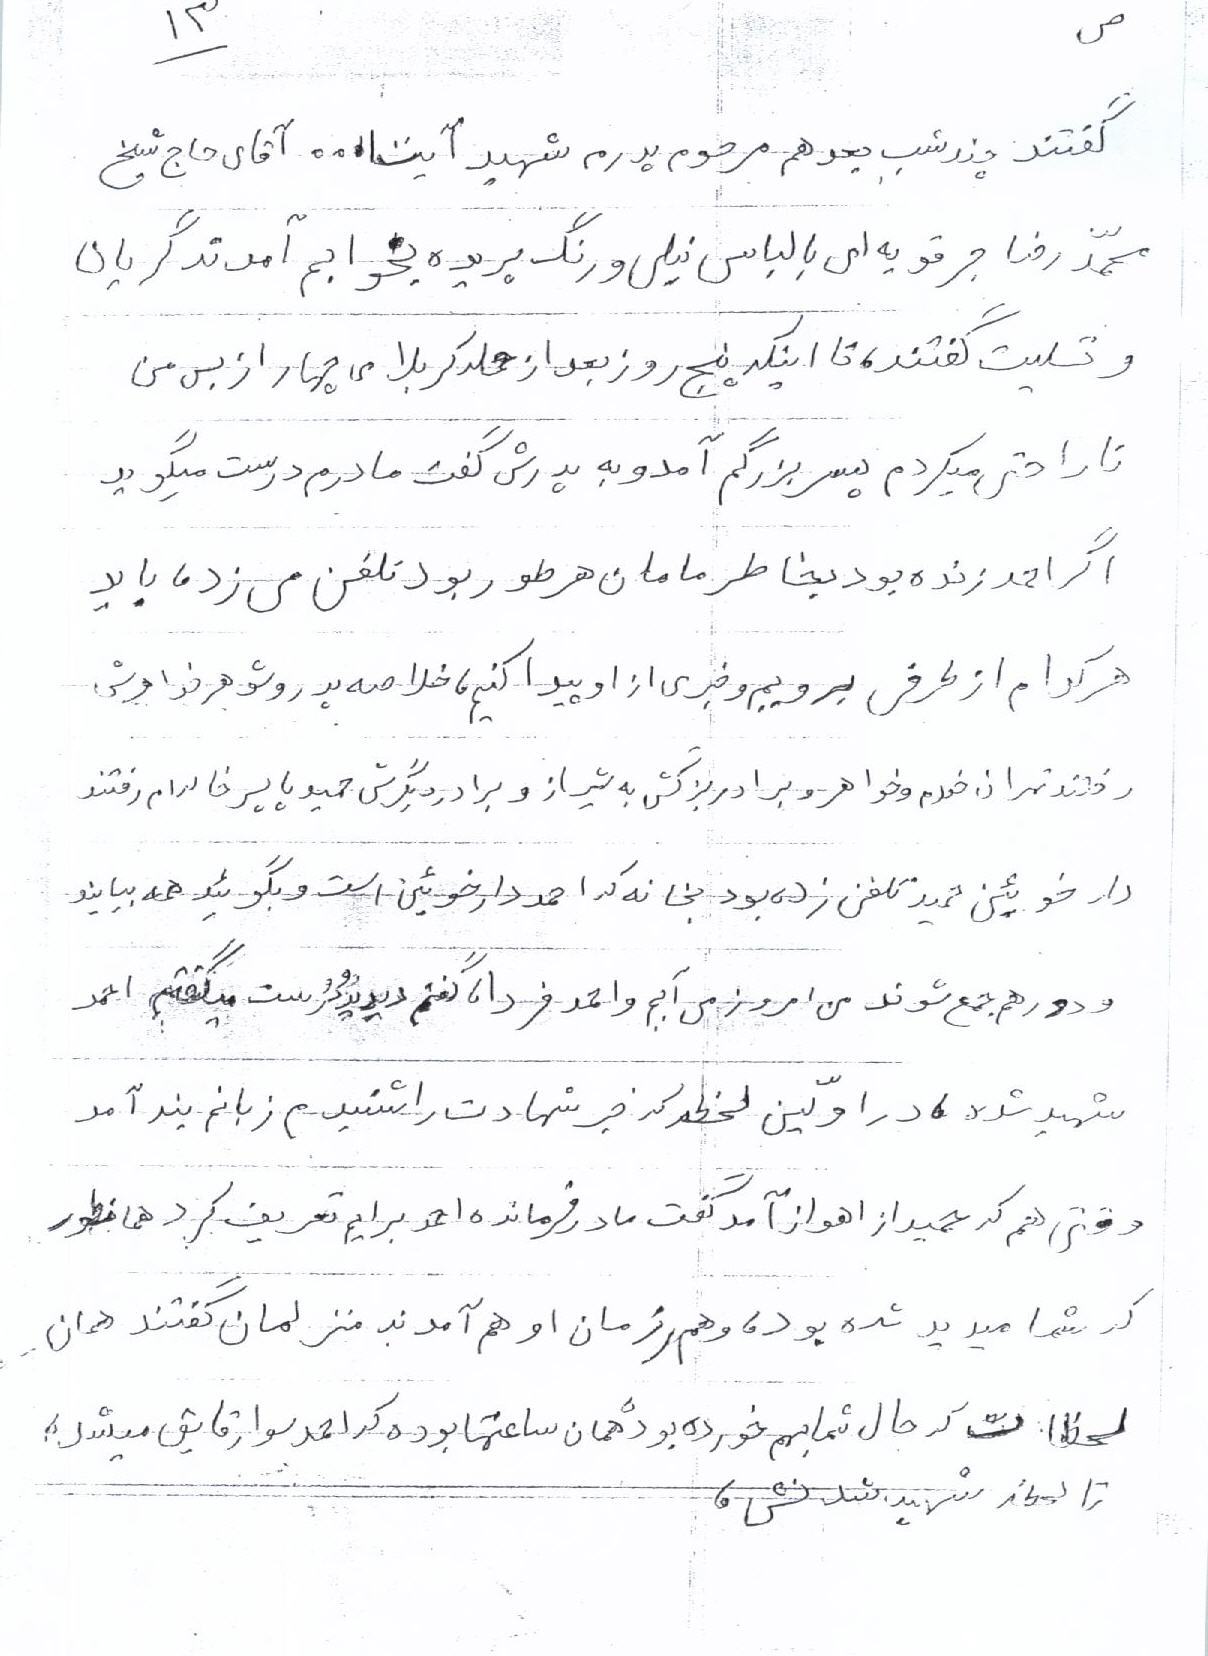 ص ۱۳
گفتند چند شب بعد هم مرحوم پدرم شهید آیت‌ا... آقای حاج شیخ
محمّد رضا جرقویه‌ای با لباس نیلی و رنگ پریده بخوابم آمدند گریان
و تسلیت گفتند، تا اینکه پنج روز بعد از حمله کربلای چهار از بس من
ناراحتی میکردم پسر بزرگم آمد و به پدرش گفت مادرم درست میگوید
اگر احمد زنده بود بخاطر مامان هر طور بود تلفن می زد، باید
هر کدام از طرفی برویم و خبری از او پیدا کنیم، خلاصه پدر و شوهر خواهرش
رفتند تهران خودم و خواهر و برادر بزرگش به شیراز و برادر دیگرش حمید با پسر خاله‌ام رفتند
دارخوئین حمید تلفن زده بود بخانه که احمد دارخوئین است و بگوئید همه بیایند
و دور هم جمع شوند من امروز می آیم و احمد فردا، گفتم دیدید درست میگفتم احمد
شهید شده، در اوّلین لحظه که خبر شهادت را شنیدم زبانم بند آمد
وقتی هم که حمید از اهواز آمد گفت مادر فرمانده احمد برایم تعریف کرد همانطور
که شما میدید شده بود، و همرزمان او هم آمدند منزلمان گفتند همان
لحظات که حال شما بهم خورده بود همان ساعتها بوده که احمد سوار قایق میشد،
تا لحظه شهید شدنش،